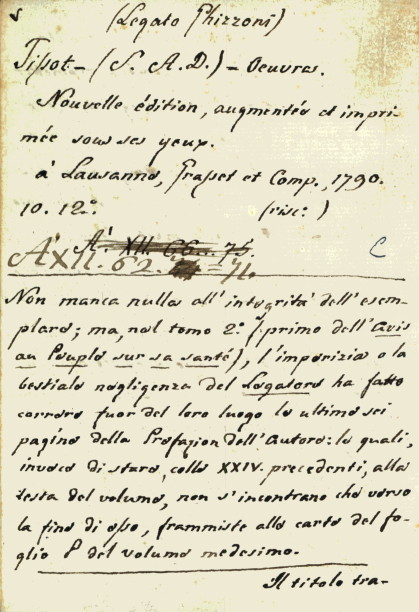 (Legato Ghizzoni)
Tissot - (S. A. D.) - Oeuvres.
Nouvelle édition, augmentée et impri-
mée sous ses yeux.
à Lausanne, Grasset et Comp., 1790.
10. 12.º (risc.)
A.' XII. 66.. 75. C
A' XII. 62. 71.
Non manca nulla all' integrità dell' esem-
plare; ma, nel tomo 2.º (primo dell' Avis
au Peuple sur sa santé), l' imperizia o la
bestiale negligenza del Legatore ha fatto
correre fuor del loro luogo le ultime sei
pagine della Prefazion dell' Autore: le quali,
invece di stare, colle XXIV. precedenti, alla
testa del volume, non s' incontrano che verso
la fine di esso, frammiste alle carte del fo-
glio P del volume medesimo.
Il titolo tra-